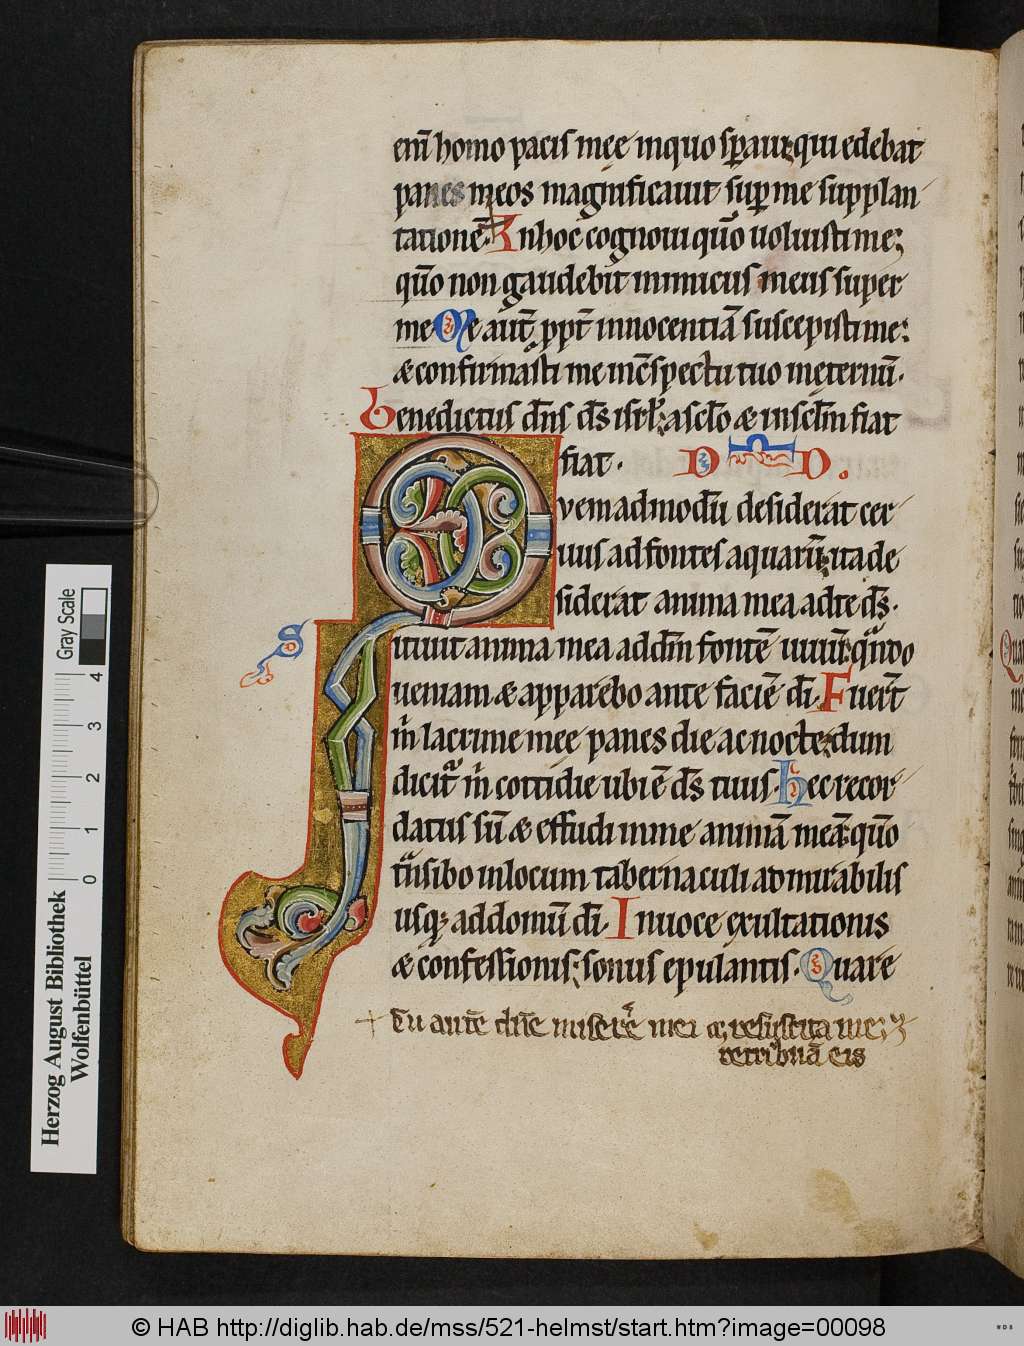 eni̅ homo pacis mee inquo sp̅aui: qui edebat
panes meos magnificauit sup̅ me supplan
tatione̅. Inhoc cognoui qm̅o uoluisti me;
qm̅o non gaudebit inimicus meus super
me Me aut̅ ꝓpt̅ innocentia̅ suscepisti me:
& confirmasti me inc̅spectu tuo ineternu̅.
Benedictus dn̅s ds̅ isrl̅: asclo̅ & inseclm̅ fiat
fiat. D D.
Quemadmodu̅ desiderat cer
uus ad fontes aquaru̅: ita de
siderat anima mea adte ds̅.
Sitiuit anima mea ad dm̅ fonte̅ uiuu̅: qu̅do
ueniam & apparebo ante facie̅ di̅. Fuer̅t
m̅ lacrime mee panes die ac nocte: dum
dicit᷑ m̅ cottidie ubi e̅ ds̅ tuus. Hec recor
datus su̅ & effudi inme anima̅ mea̅: qm̅o
tn̅sibo inlocum tabernaculi admirabilis
usq; ad domu̅ di̅. Inuoce exultationis
& confessionis: sonus epulantis. Quare
+ Tu aute̅ dn̅e misere̅ mei & resuscita me: &
retribua̅ eis
Gray Scale
4
3
2
1
0
Herzog August Bibliothek
Wolfenbüttel
© HAB http://diglib.hab.de/mss/521-helmst/start.htm?image=00098